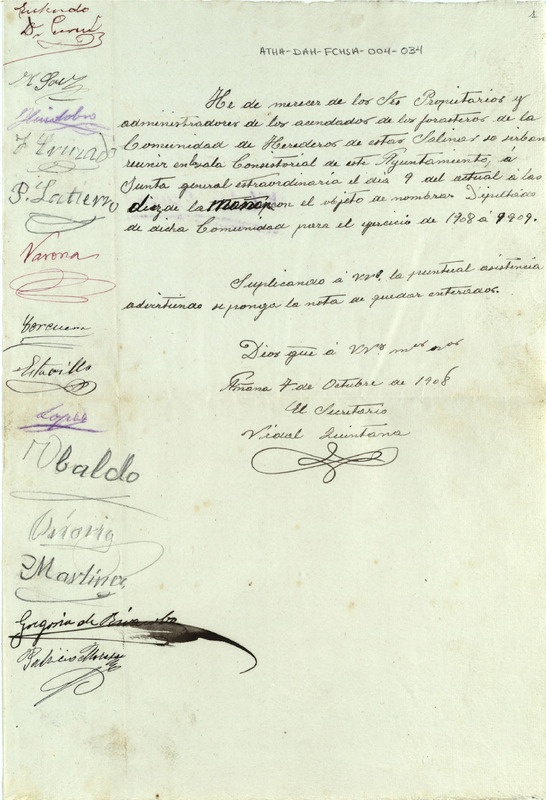 1
ATHA-DAH-FCHSA-004-034
Enterado
M Saez
P. Latierro
Varona
Estavillo
Lopez
Ubaldo
Martinez
Gregoria de
Patricio
He de merecer de los Srs Propietarios y
administradores de los acendados de los forasteros de la
Comunidad de Herederos de estas Salinas se sirban
reunir en la sala Consistorial de este Ayuntamiento, á
Junta general extraordinaria el dia 9 del actual á las
diez de la mañana con el objeto de nombrar Diputado
de dicha Comunidad para el ejercicio de 1908 á 1909.
Suplicando á VVs. la puntual asistencia
advirtiendo se ponga la nota de quedar enterados.
Dios gue á VVs ms as
Añana 7 de Octubre de 1908
El Secretario
Vidal Quintana